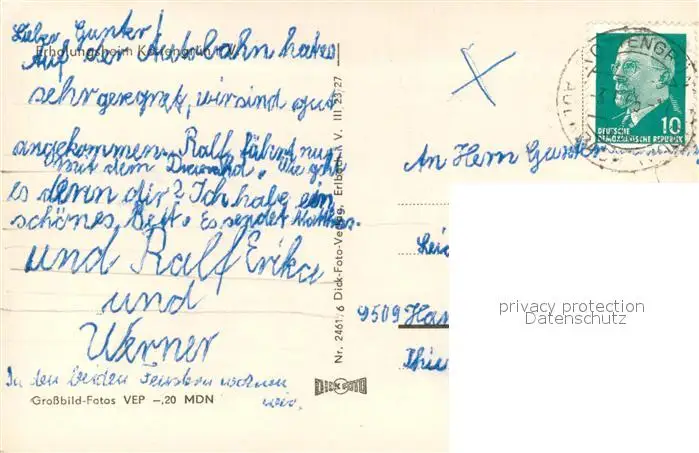 Lieber Gunter!
Erholungsheim Kottengrün i. V.
Auf der Autobahn hats
sehr geregnet, wir sind gut
angekommen. Ralf fährt nur
mit dem Dreirad. Wie geht
es denn dir? Ich habe ein
schönes Bett. Es sendet
und Ralf Erika
und
Werner
In den beiden Fenstern wohnen
wir.
Großbild-Fotos VEP -,20 MDN
Nr. 2461/6 Dick-Foto-Verlag, Erlbach i. V. III 23/27
DICK FOTO
DEUTSCHE
DEMOKRATISCHE REPUBLIK
10
An Herrn Gunter
9509
privacy protection
Datenschutz